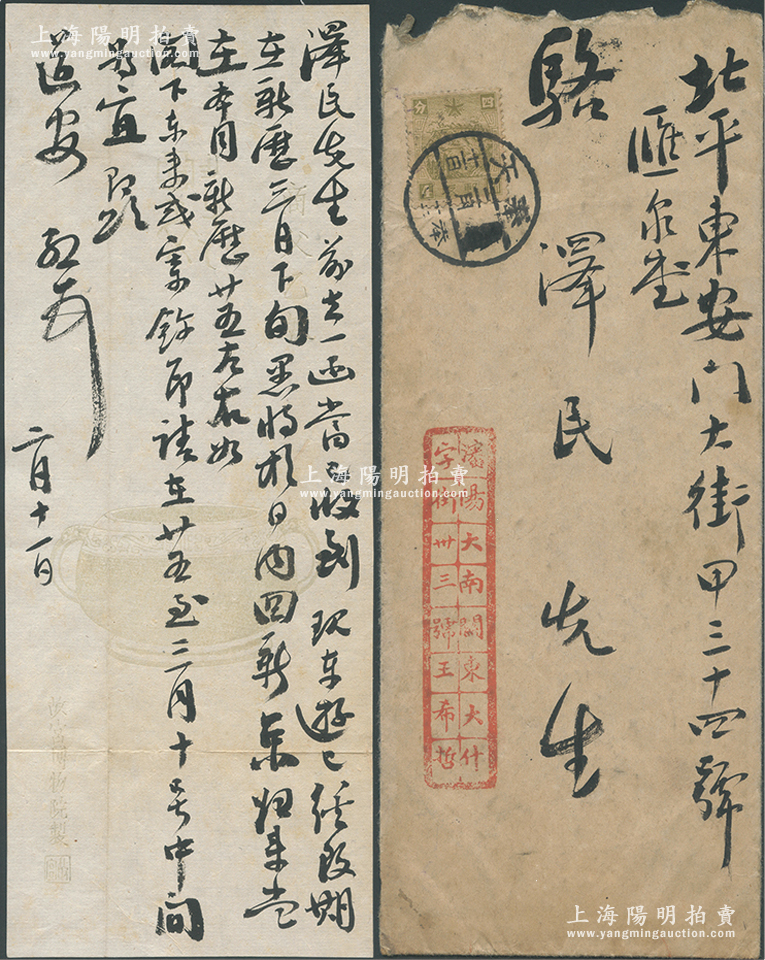 澤民先生前去一函當已收到現東遊已經改期
在新歷三月下旬弟將於日內回新京歸來當
在本月新歷廿五左右如
閣下東來或寄錢即請在廿五至三月十号中間
為宜 即頌
近安
二月十一日
故宮博物院製
北平東安門大街甲三十四號
匯泉堂
駱澤民先生
瀋陽大南關東大什
字街卅三號王希哲
四分
奉天
上海陽明拍賣
www.yangmingauction.com
上海陽明拍賣
www.yangmingauction.com
上海陽明拍賣
www.yangmingauction.com